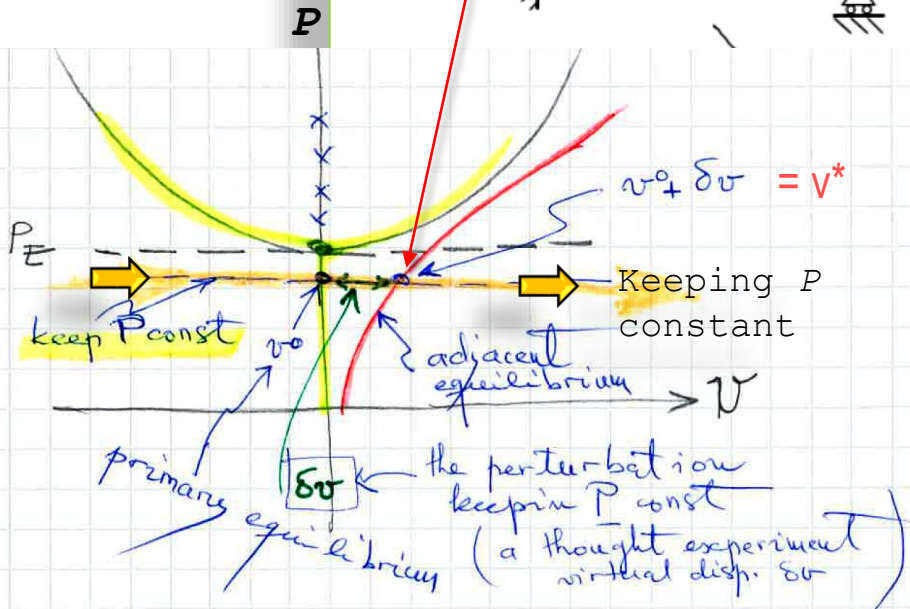 P
v° + δv = v*
P_E
Keeping P
constant
keep P const
v°
adjacent
equilibrium
v
primary
equilibrium
δv
the perturbation
keepin P const
(a thought experiment
virtual disp. δv)